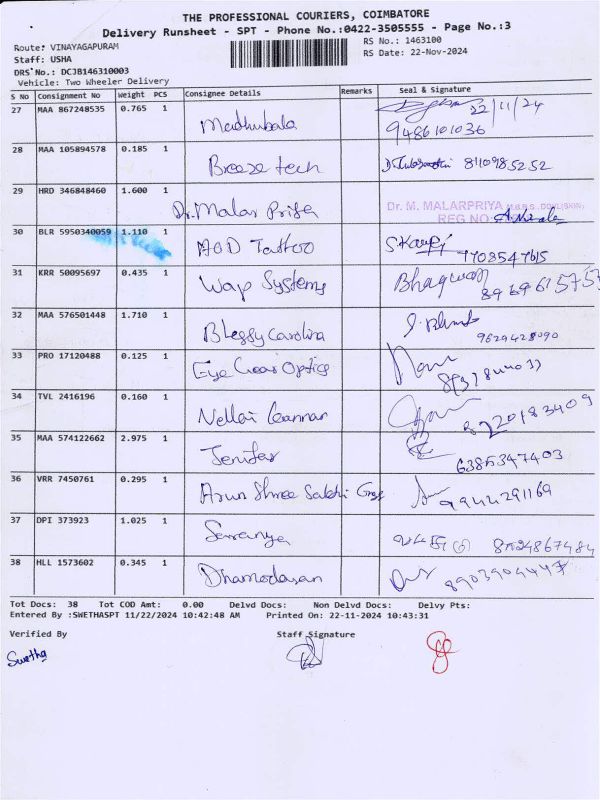 THE PROFESSIONAL COURIERS, COIMBATORE
Delivery Runsheet - SPT - Phone No.:0422-3505555 - Page No.:3
Route: VINAYAGAPURAM
Staff: USHA
DRS No.: DCJB146310003
Vehicle: Two Wheeler Delivery
RS No.: 1463100
RS Date: 22-Nov-2024
S No Consignment No Weight PCS Consignee Details Remarks Seal & Signature
27 MAA 867248535 0.765 1 Madhubala 22/11/24
9486101036
28 MAA 105894578 0.185 1 Breeze tech 8110985252
29 HRD 346848460 1.600 1 Dr. Malar Priya Dr. M. MALARPRIYA
REG NO
30 BLR 5950340059 1.110 1 AOD Tattoo 7708547615
31 KRR 50095697 0.435 1 Wap Systems Bhagwan
32 MAA 576501448 1.710 1 Blessy Carolina 9629428090
33 PRO 17120488 0.125 1 Eye Gear Optics
34 TVL 2416196 0.160 1 Nellai Kannan 8220183409
35 MAA 574122662 2.975 1 Jenifer 6385347403
36 VRR 7450761 0.295 1 Arun Shree Sakthi 9944291169
37 DPI 373923 1.025 1 Saranya 8124867484
38 HLL 1573602 0.345 1 Dhamodasan
Tot Docs: 38 Tot COD Amt: 0.00 Delvd Docs: Non Delvd Docs: Delvy Pts:
Entered By :SWETHASPT 11/22/2024 10:42:48 AM Printed On: 22-11-2024 10:43:31
Verified By Staff Signature
Swetha